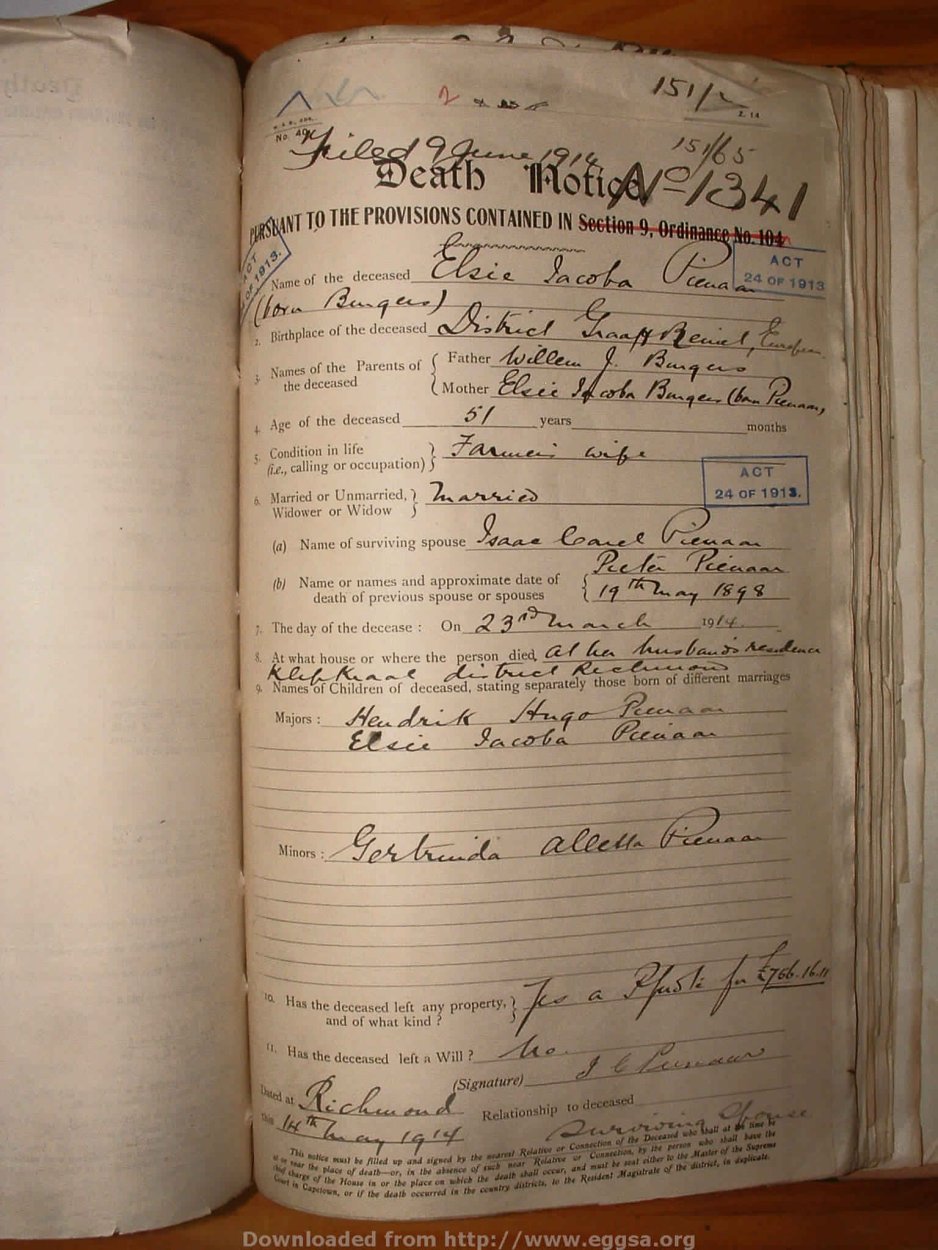 151/2
2
No. 40
Z. 14
Filed 9 June 1914
151/65
Death Notice No 1341
PURSUANT TO THE PROVISIONS CONTAINED IN Section 9, Ordinance No. 104
ACT
24 OF 1913
ACT
OF 1913.
Name of the deceased Elsie Jacoba Pienaar
(born Burgers)
2. Birthplace of the deceased District Graaff Reinet, European
3. Names of the Parents of the deceased { Father Willem J. Burgers
Mother Elsie Jacoba Burgers (born Pienaar)
4. Age of the deceased 51 years months
5. Condition in life
(i.e., calling or occupation) } Farmer's wife
ACT
24 OF 1913.
6. Married or Unmarried,
Widower or Widow } Married
(a) Name of surviving spouse Isaac Carel Pienaar
(b) Name or names and approximate date of
death of previous spouse or spouses { Pieter Pienaar
19th May 1898
7. The day of the decease : On 23rd March 1914.
8. At what house or where the person died At her husband's residence
Klipkraal district Richmond
9. Names of Children of deceased, stating separately those born of different marriages
Majors : Hendrik Hugo Pienaar
Elsie Jacoba Pienaar
Minors : Gertruida Aletta Pienaar
10. Has the deceased left any property,
and of what kind ? } Yes a for £766.16.11
11. Has the deceased left a Will ? No.
(Signature) I C Pienaar
Dated at Richmond
Relationship to deceased
this 14th May 1914
Surviving Spouse
This notice must be filled up and signed by the nearest Relative or Connection of the Deceased who shall at the time be
at or near the place of death—or, in the absence of such near Relative or Connection, by the person who shall have the
chief charge of the House in or the place on which the death shall occur, and must be sent either to the Master of the Supreme
Court in Capetown, or if the death occurred in the country districts, to the Resident Magistrate of the district, in duplicate.
Downloaded from http://www.eggsa.org